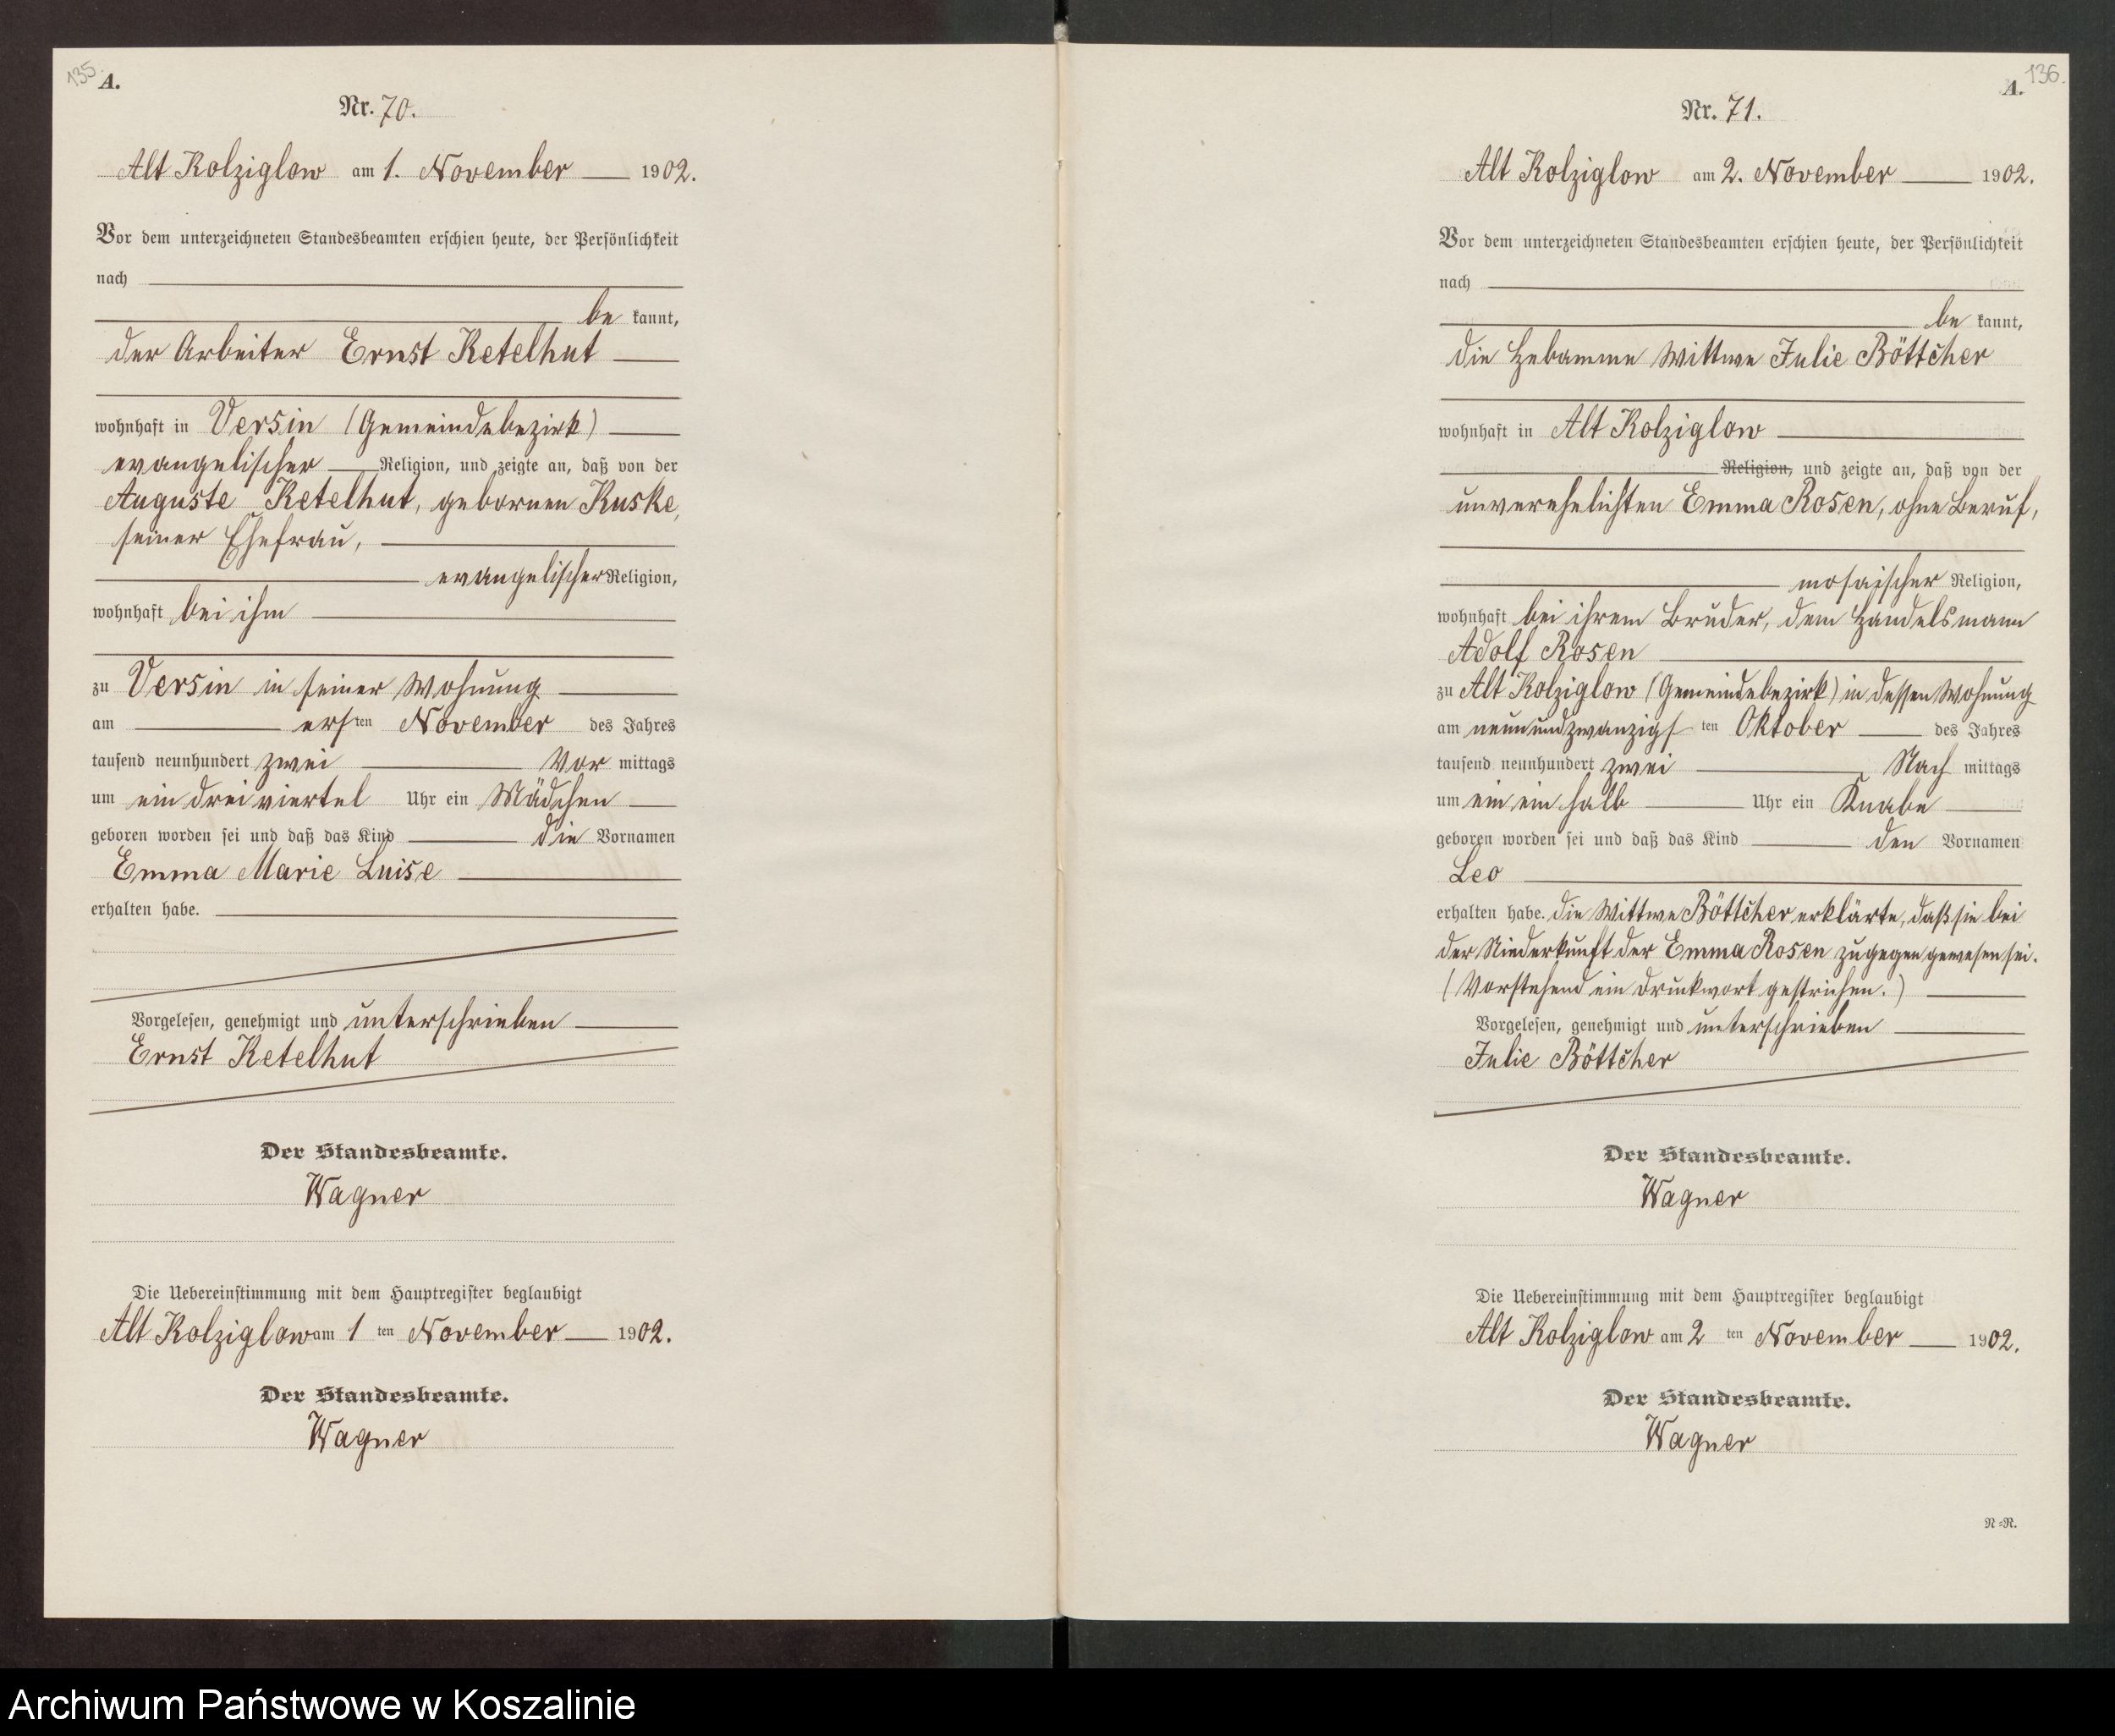 135.
A.
Nr. 70.
Alt Kolziglow am 1. November 1902.
Vor dem unterzeichneten Standesbeamten erschien heute, der Persönlichkeit
nach
be kannt,
der Arbeiter Ernst Ketelhut
wohnhaft in Versin (Gemeindebezirk)
evangelischer Religion, und zeigte an, daß von der
Auguste Ketelhut, gebornen Kuske,
seiner Ehefrau,
evangelischer Religion,
wohnhaft bei ihm
zu Versin in seiner Wohnung
am ersten November des Jahres
tausend neunhundert zwei Vor mittags
um ein dreiviertel Uhr ein Mädchen
geboren worden sei und daß das Kind die Vornamen
Emma Marie Luise
erhalten habe.
Vorgelesen, genehmigt und unterschrieben
Ernst Ketelhut
Der Standesbeamte.
Wagner
Die Uebereinstimmung mit dem Hauptregister beglaubigt
Alt Kolziglow am 1 ten November 1902.
Der Standesbeamte.
Wagner
136.
A.
Nr. 71.
Alt Kolziglow am 2. November 1902.
Vor dem unterzeichneten Standesbeamten erschien heute, der Persönlichkeit
nach
be kannt,
die Hebamme Wittwe Julie Böttcher
wohnhaft in Alt Kolziglow
Religion, und zeigte an, daß von der
unverehelichten Emma Rosen, ohne Beruf,
mosaischer Religion,
wohnhaft bei ihrem Bruder, dem Handelsmann
Adolf Rosen
zu Alt Kolziglow (Gemeindebezirk) in dessen Wohnung
am neunundzwanzigsten Oktober des Jahres
tausend neunhundert zwei Nach mittags
um ein ein halb Uhr ein Knabe
geboren worden sei und daß das Kind den Vornamen
Leo
erhalten habe. Die Wittwe Böttcher erklärte, daß sie bei
der Niederkunft der Emma Rosen zugegen gewesen sei.
(Vorstehend ein Druckwort gestrichen.)
Vorgelesen, genehmigt und unterschrieben
Julie Böttcher
Der Standesbeamte.
Wagner
Die Uebereinstimmung mit dem Hauptregister beglaubigt
Alt Kolziglow am 2 ten November 1902.
Der Standesbeamte.
Wagner
N=N.
Archiwum Państwowe w Koszalinie